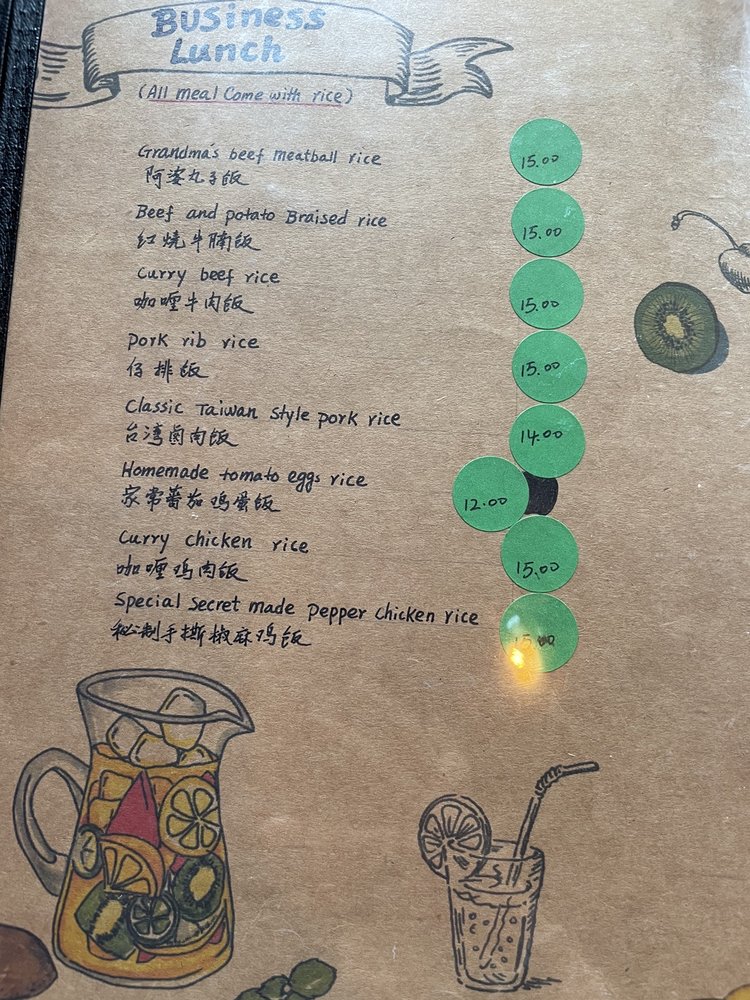 Business
Lunch
(All meal Come with rice)
Grandma's beef meatball rice 15.00
阿婆丸子饭
Beef and potato Braised rice 15.00
红烧牛腩饭
Curry beef rice 15.00
咖喱牛肉饭
Pork rib rice 15.00
仔排饭
Classic Taiwan Style pork rice 14.00
台湾卤肉饭
Homemade tomato eggs rice 12.00
家常蕃茄鸡蛋饭
Curry chicken rice 15.00
咖喱鸡肉饭
Special Secret made Pepper Chicken rice 15.00
秘制手撕椒麻鸡饭